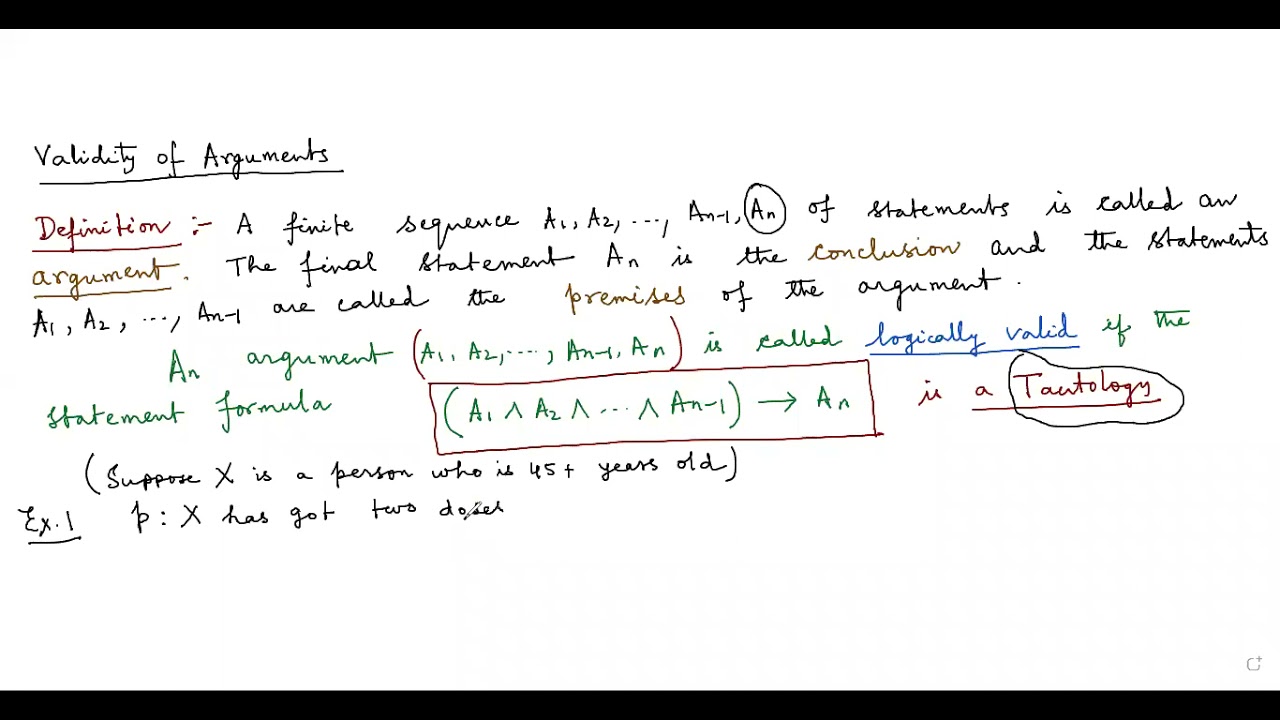 Validity of Arguments
Definition :- A finite sequence A1, A2, ..., An-1, An of statements is called an
argument. The final statement An is the conclusion and the statements
A1, A2, ..., An-1 are called the premises of the argument.
An argument (A1, A2, ..., An-1, An) is called logically valid if the
statement formula (A1 ∧ A2 ∧ ... ∧ An-1) → An is a Tautology
(Suppose X is a person who is 45+ years old)
Ex.1 p : X has got two doses